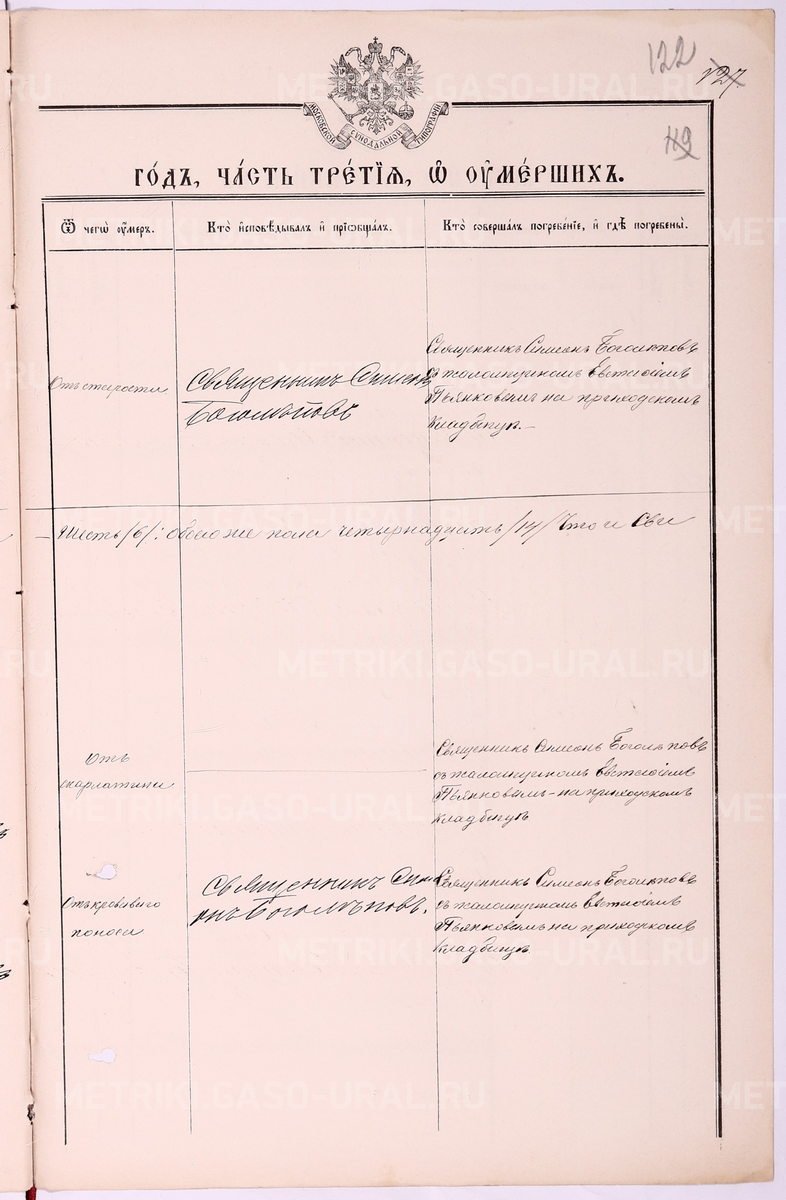 122
127
МОСКОВСКОЙ СѴНОДАЛЬНОЙ ТИПОГРАФІИ
49
ГО́ДЪ, ЧА́СТЬ ТРЕ́ТІѦ, Ѽ ОУМЕ́РШИХЪ.
Ѿ чегѡ̀ оу́меръ.
Кто̀ и҆сповѣ́дывалъ и҆ прїѡбща́лъ.
Кто̀ соверша́лъ погребе́нїе, и҆ гдѣ̀ погребены̀.
Отъ старости
Священникъ Симеонъ
Боголѣповъ
Священникъ Симеонъ Боголѣповъ
съ псаломщикомъ Евстигнѣемъ
Пьянковымъ на приходскомъ
кладбищѣ.—
— Шесть /6/: обоего же пола четырнадцать /14/ Что и Сви
Отъ
скарлатины
Священникъ Симеонъ Боголѣповъ
съ псаломщикомъ
Пьянковымъ – на приходскомъ
кладбищѣ
Отъ кроваваго
поноса
Священникъ Симе
онъ Боголѣповъ.
Священникъ Симеонъ Боголѣповъ
съ псаломщикомъ
Пьянковымъ на приходскомъ
кладбищѣ
METRIKI.GASO-URAL.RU